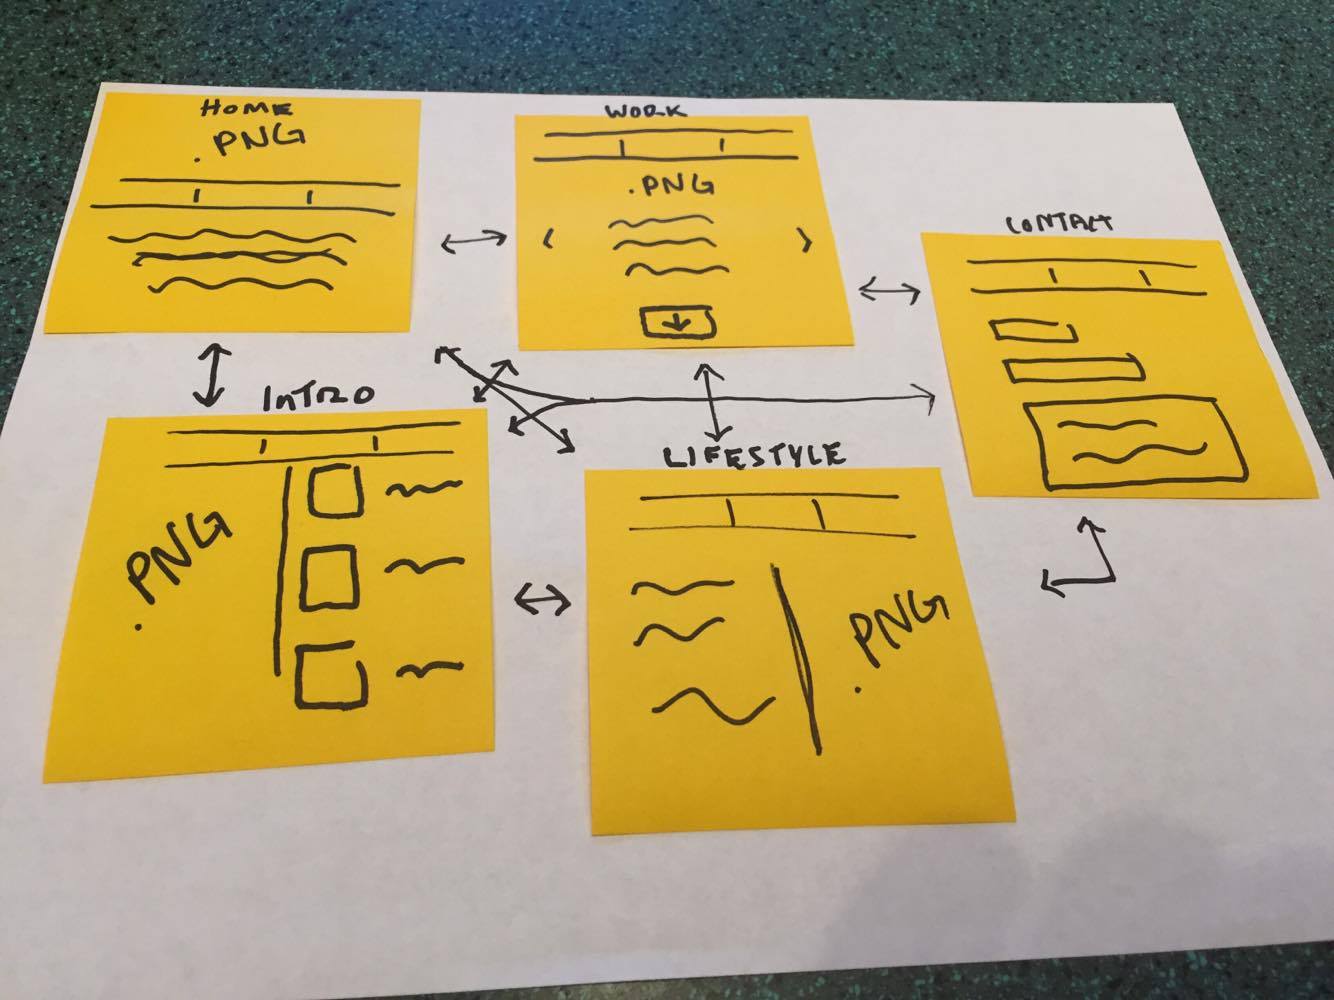 HOME
.PNG
WORK
.PNG
CONTACT
INTRO
.PNG
LIFESTYLE
.PNG